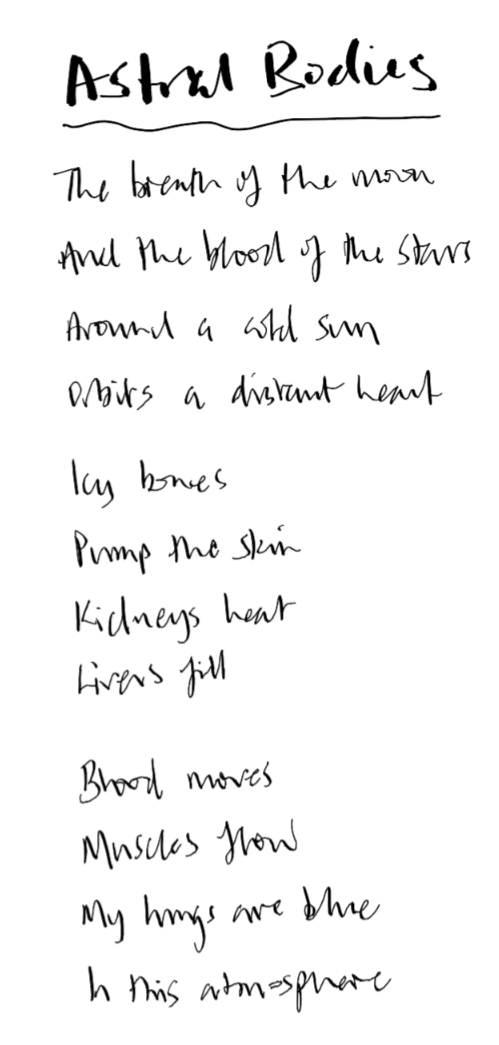 Astral Bodies
The breath of the moon
And the blood of the stars
Around a cold sun
Orbits a distant heart
Icy bones
Pump the skin
Kidneys heat
Livers fill
Blood moves
Muscles flow
My lungs are blue
In this atmosphere